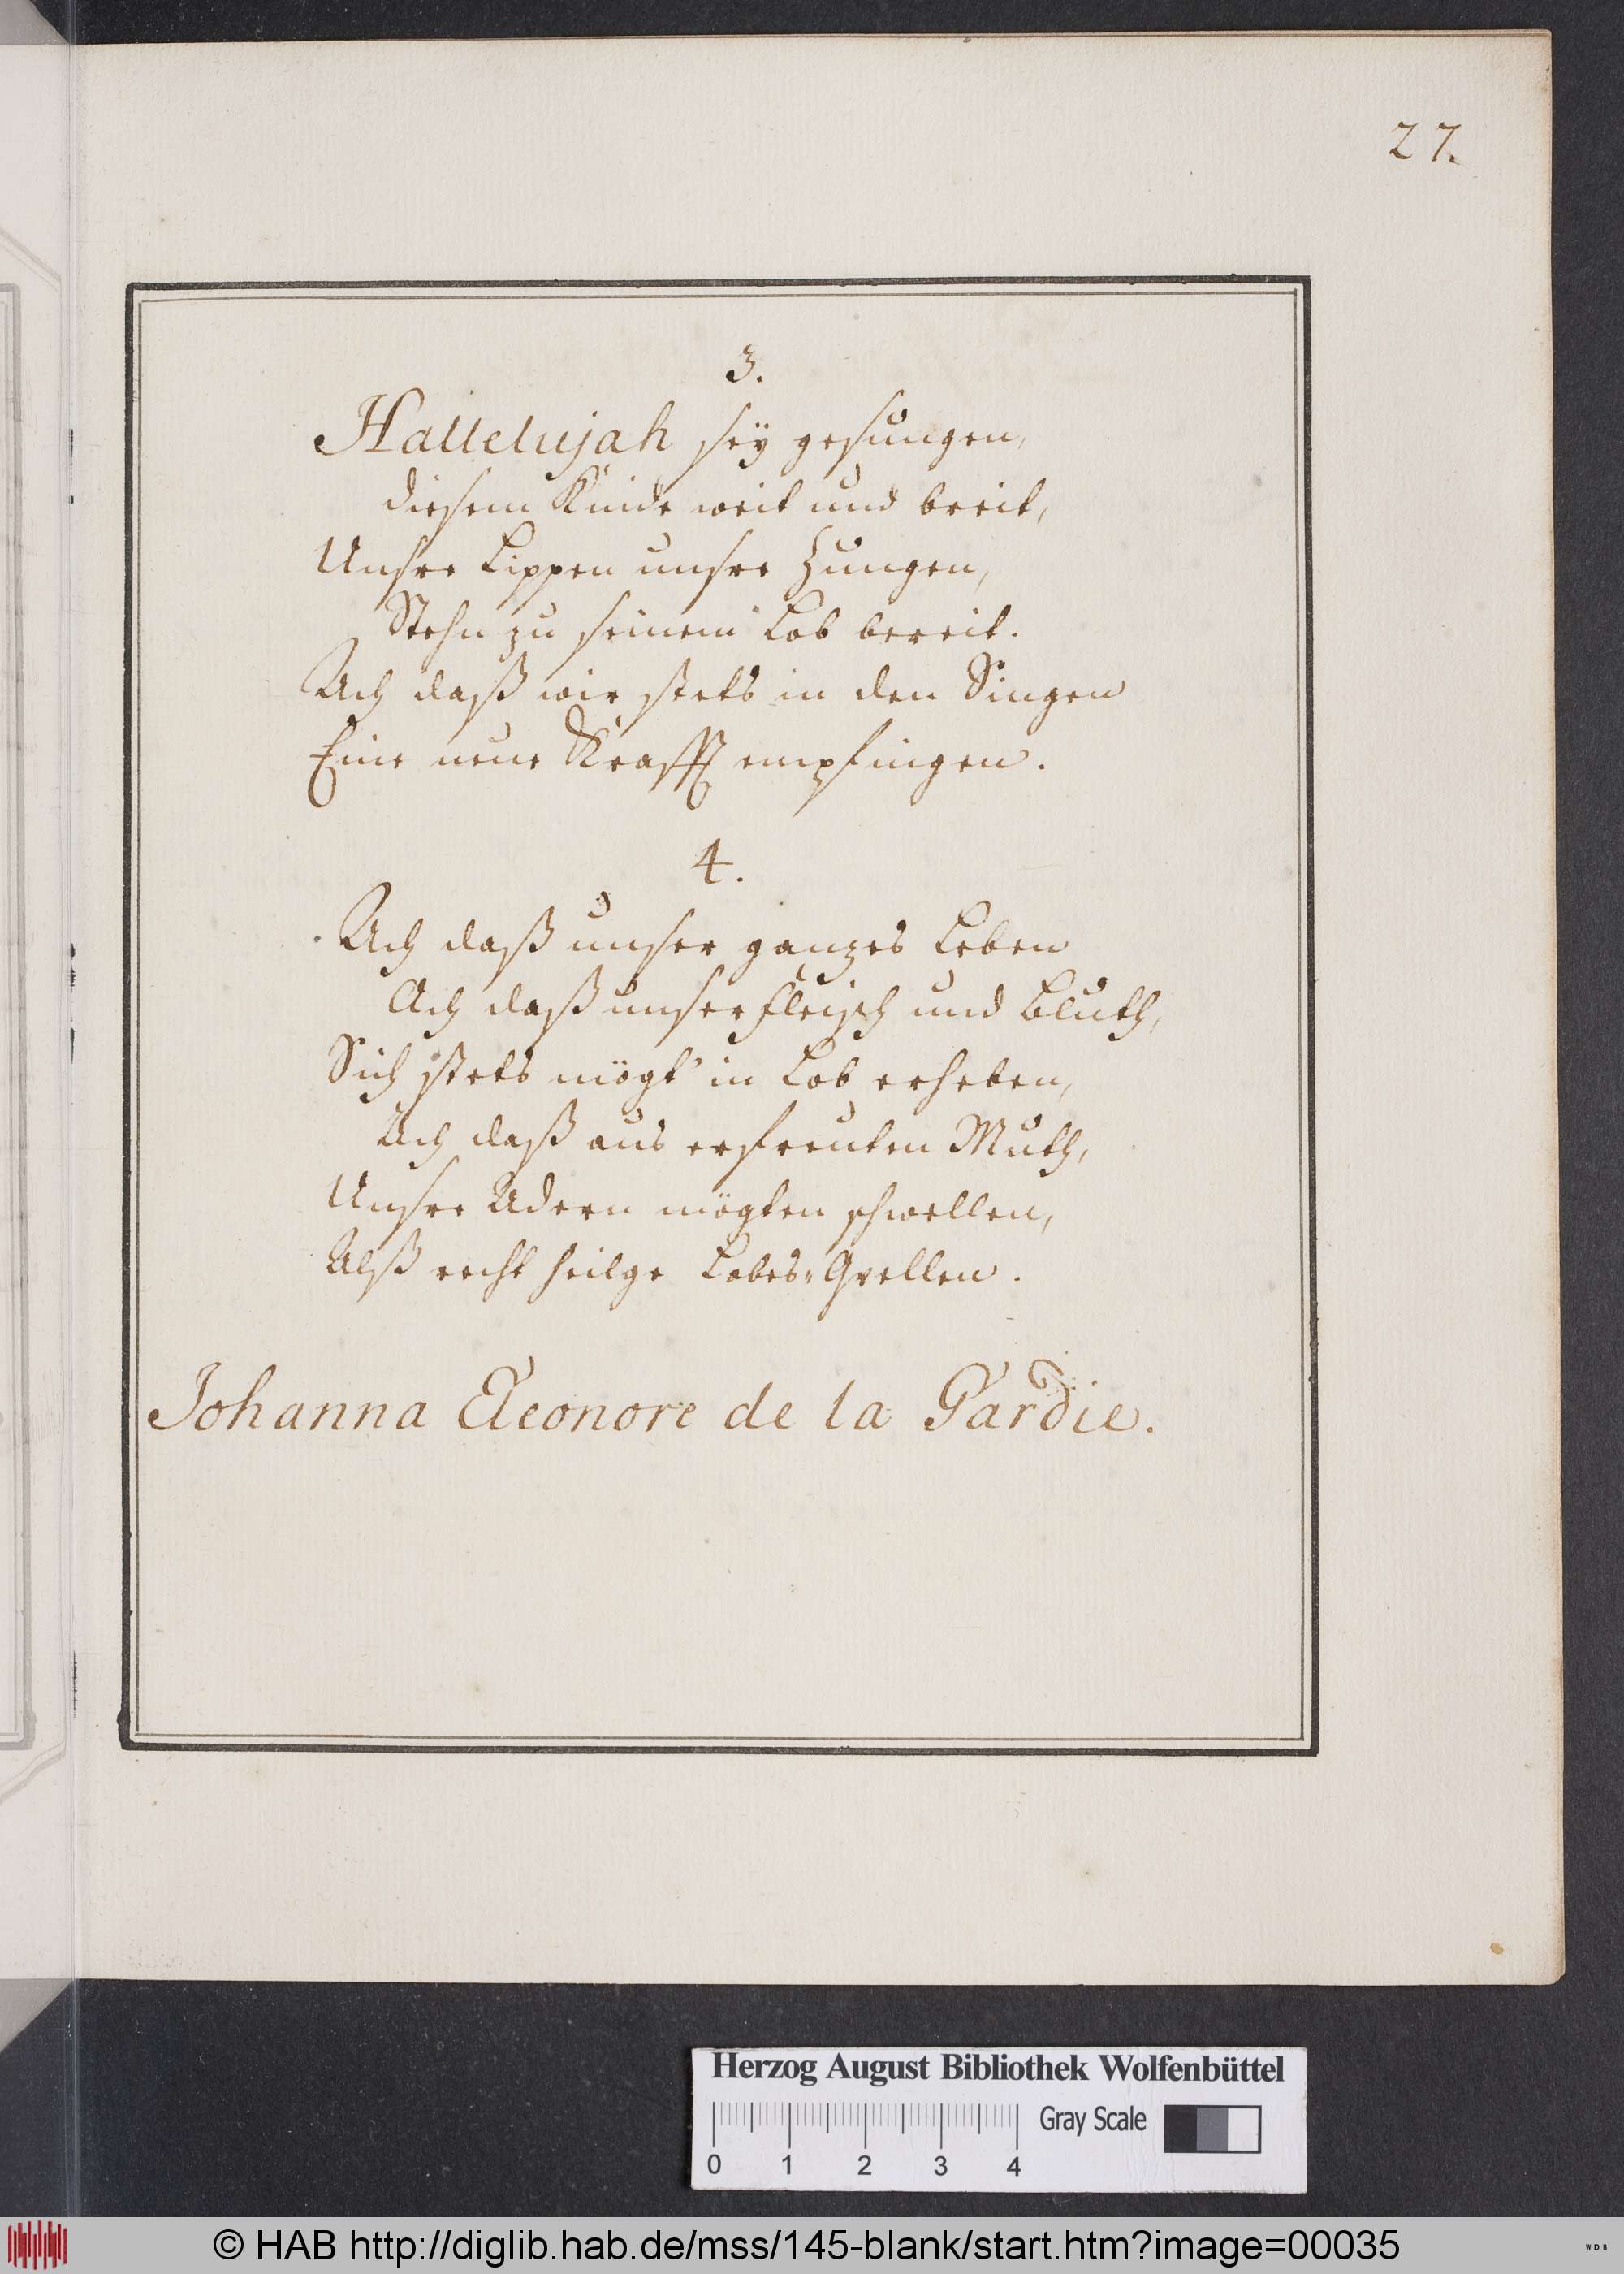 27.
3.
Hallelujah seÿ gesungen,
diesem Kinde weit und breit,
Unsre Lippen unsre Zungen,
Stehn zu seinem Lob bereit.
Ach daß wir stets in den Singen
Eine neue Krafft empfingen.
4.
Ach daß unser ganzes Leben
Ach daß unser Fleisch und Bluth,
Sich stets mögt' in Lob erheben,
Ach daß aus erfreuten Muth,
Unsre Adern mögten schwellen,
Alß recht heilge Lobes-Qvellen.
Johanna Eleonore de la Gardie.
Herzog August Bibliothek Wolfenbüttel
Gray Scale
0 1 2 3 4
© HAB http://diglib.hab.de/mss/145-blank/start.htm?image=00035
WDB